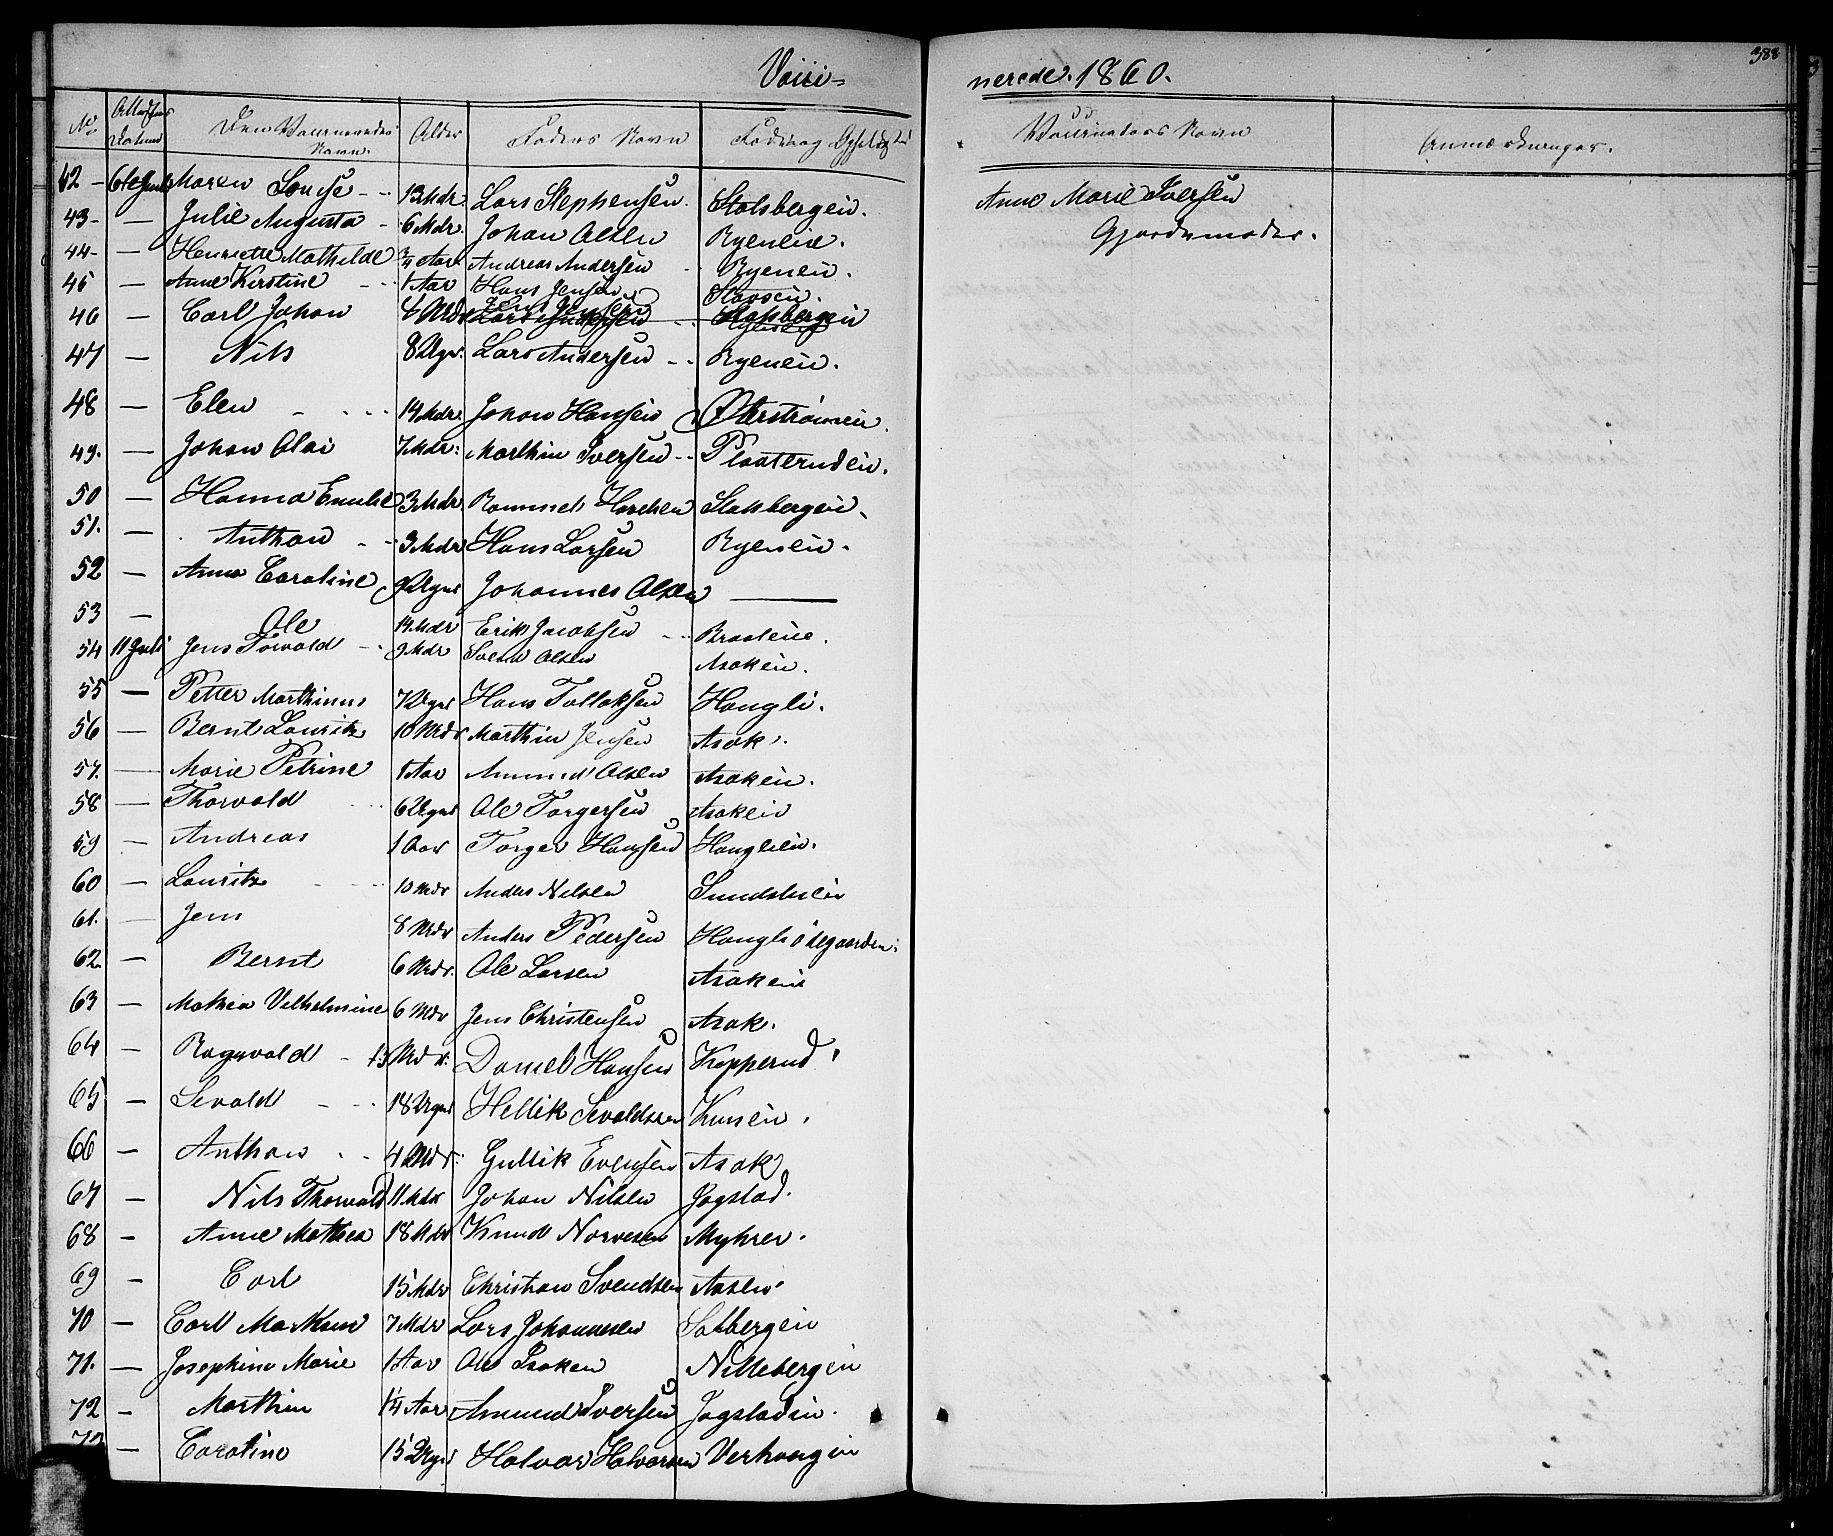 388
Vacci- nerede. 1860.
No. Den Vaccineredes Navn. Alder Faders Navn Vaccinators Navn Anmærkninger.
42 - 6te Maren Louise 13 Mdr. Lars Stephensen. Stalsbergen. Anne Marie Iversen
43 - — Julie Augusta 6 Mdr. Johan Olsen Ryeneie. Gjordemoder.
44 - — Henriette Mathilde 3/4 Aar Andreas Andersen Ryeneie.
45 — Anne Kirstine 1 Aar Hans Jensen
46 — Carl Johan 4 Mdr Jens Jensen
47 — Nils 8 Uger. Lars Andersen Ryeneie.
48 — Elen 14 Mdr. Johan Hansen
49. — Johan Olai 7 Mdr: Marthin Iversen
50 — Hanna Emilie 3 Mdr. Stalsbergen.
51. — Anthon 3 Mdr Hans Larsen Ryeneie.
52 — Anna Caroline 9 Uger Johannes Olsen ———
53 — Ole 14 Mdr Erik Jacobsen Braateeie.
54 11 Juli Jens Torvald 9 Mdr Svend Olsen Asakeie.
55 — Petter Marthinus 7 Uger Hans Tollaksen Haugli.
56 — Bernt Louritz 10 Mdr Marthin Jensen Asak.
57. — Marie Petrine 1 Aar Amund Olsen Asakeie.
58 — Thorvald 6 Uger Ole Torgersen Asakeie
59 — Andreas 1 Aar Torger Hansen Hauglieie.
60 — Louritz 10 Mdr Anders Nilsen
61. — Jens 8 Mdr Anders Pedersen Haugliødegaarden.
62 — Bernt 6 Mdr. Ole Larsen Asakeie
63 — Mathea Vilhelmine 6 Mdr Jens Christensen Asak.
64 — Ragnvald 13 Mdr. Daniel Hansen Kopperud.
65 — Sevald 18 Uger Hellik Sevaldsen
66 — Anthon 4 Mdr. Gullik Evensen Asak
67 — Nils Thorvald 11 Mdr Johan Nilsen Jogstad.
68 — Anne Mathea 18 Mdr Knud Myhrer.
69 — Carl 15 Mdr Christian Svendsen Aasen.
70 — Carl Mathias 7 Mdr Lars Johannesen
71. — Josephine Marie 1 Aar Ole Isaksen Nittebergeie
72 — Marthin 1/4 Aar Amund Iversen Jogstadeie.
73 — Caroline 15 Uger Halvor Halvorsen